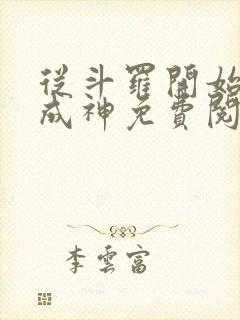 從斗羅開始
成神免費閱
李雲富